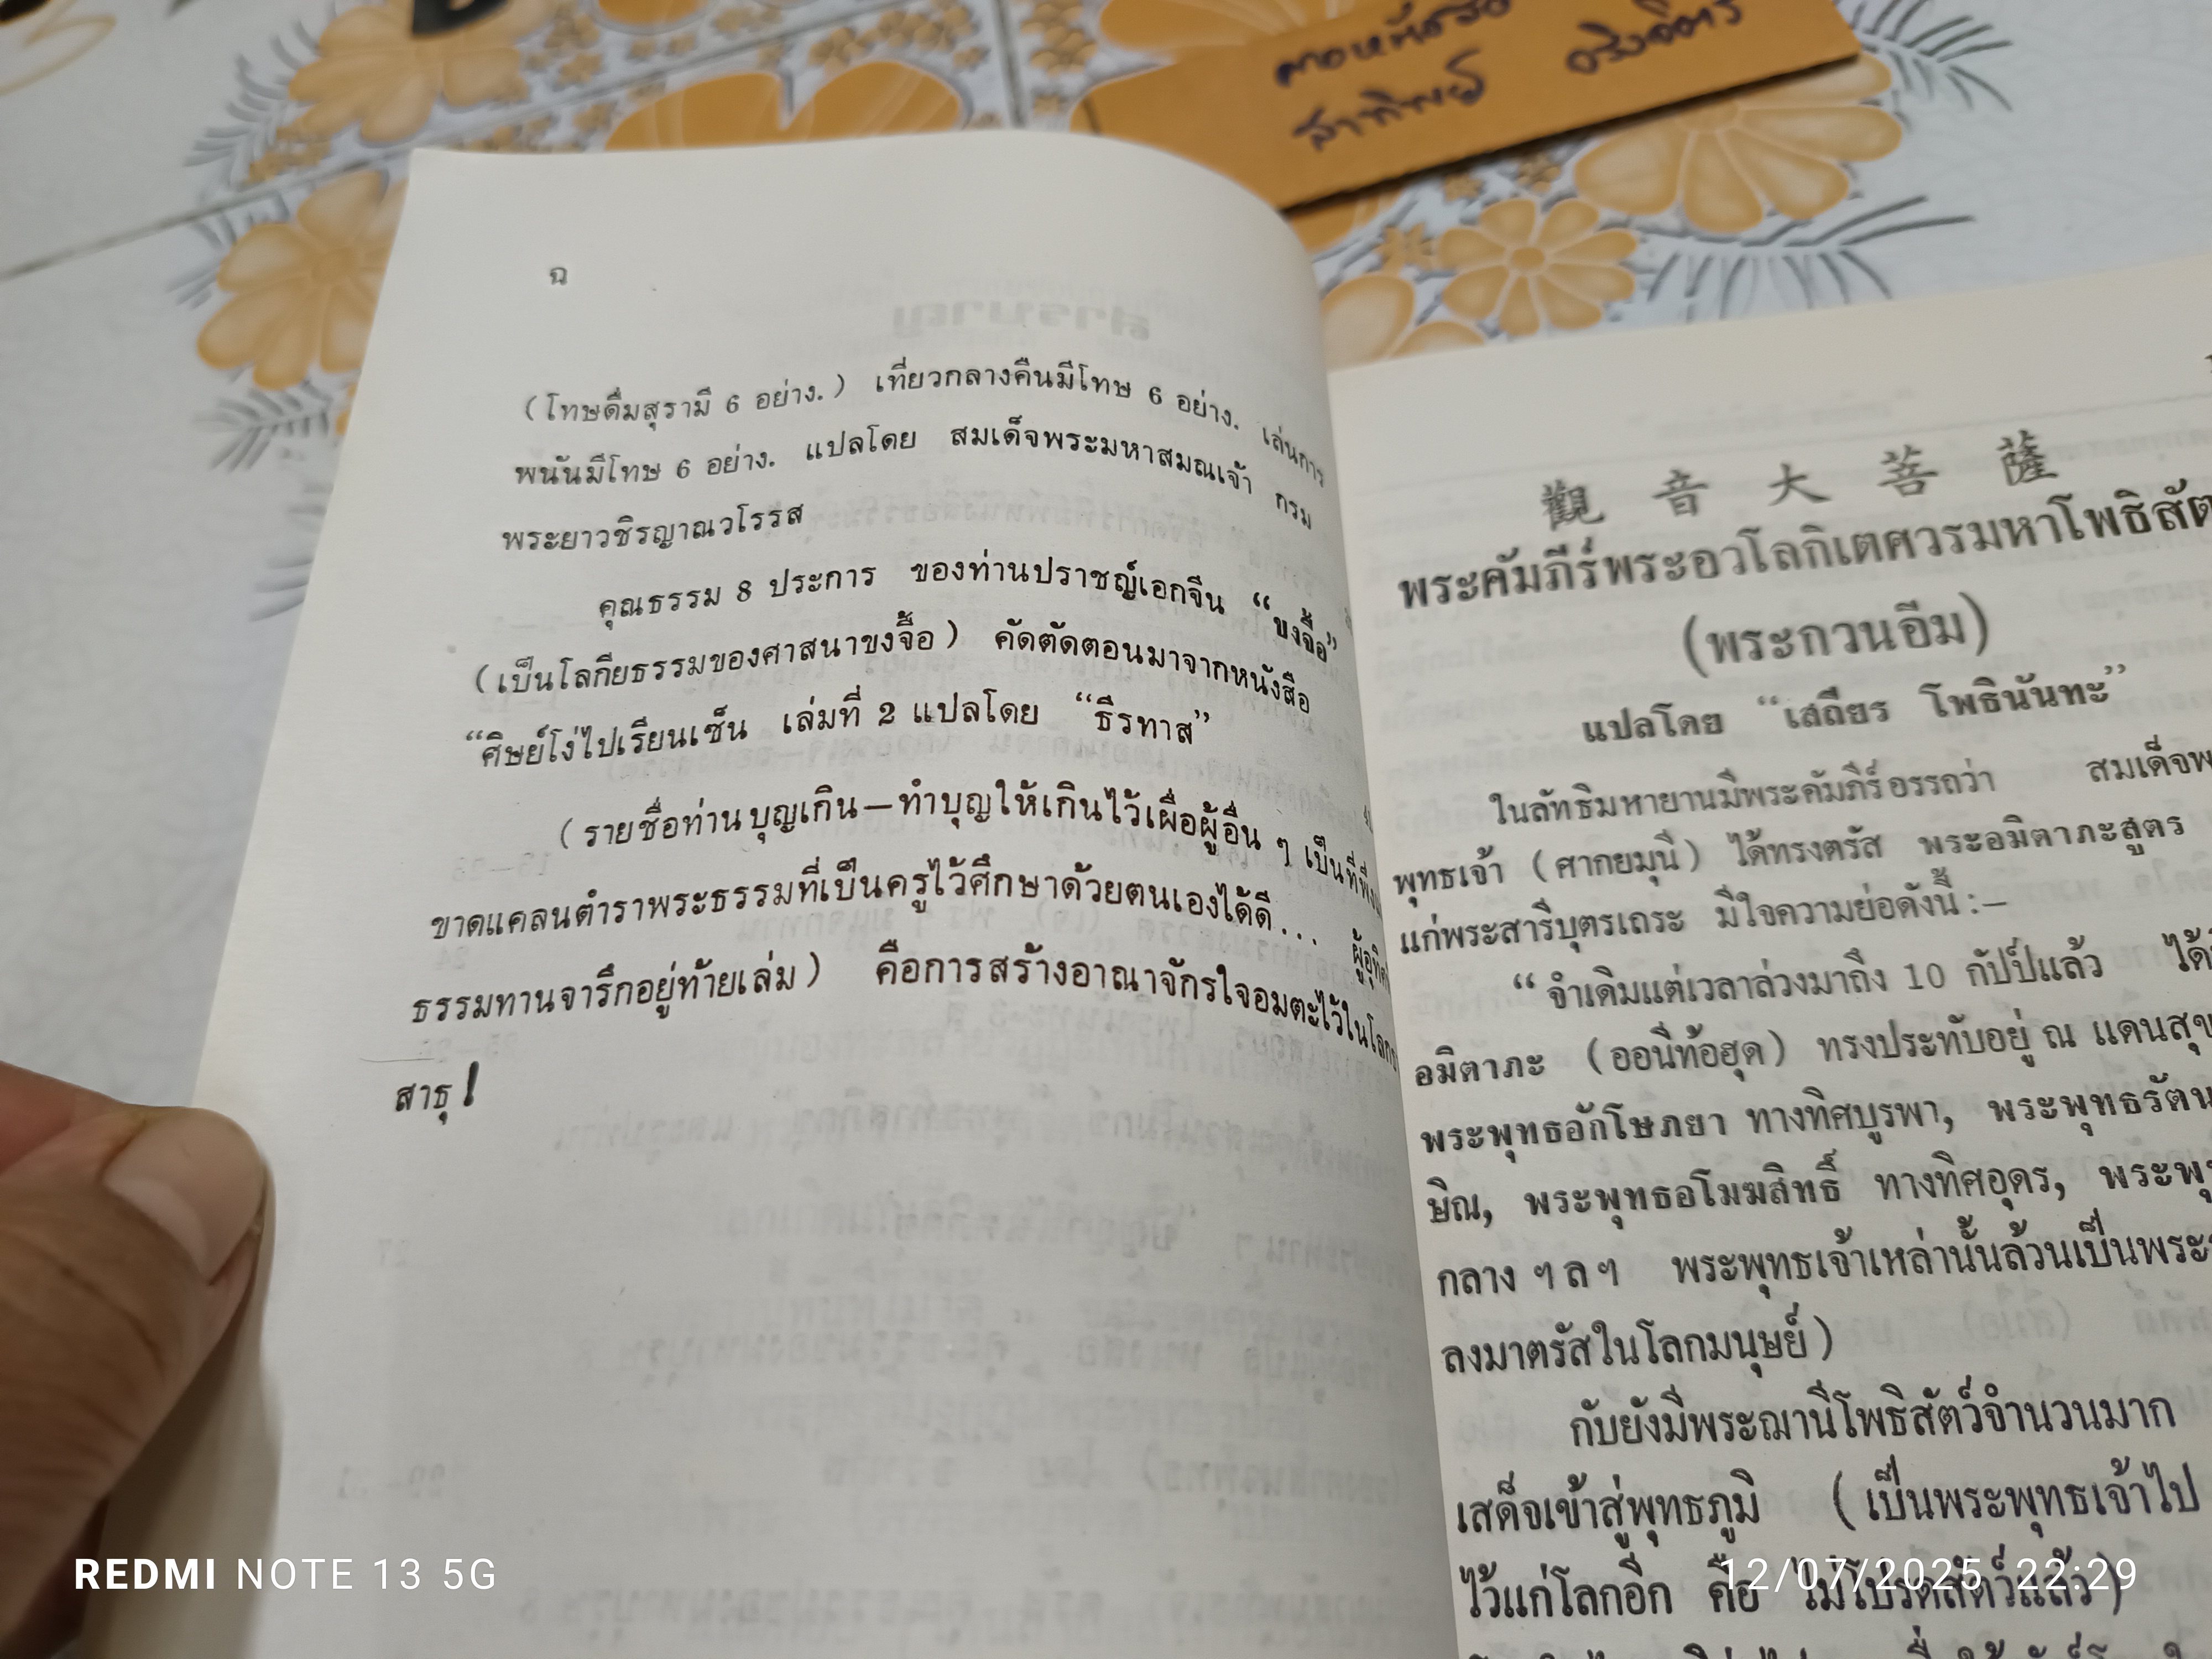 ตาอหนังสือ
สาทิพย์ อริยจิตร
ฉ
(โทษดื่มสุรามี 6 อย่าง.) เที่ยวกลางคืนมีโทษ 6 อย่าง. เล่นการ
พนันมีโทษ 6 อย่าง. แปลโดย สมเด็จพระมหาสมณเจ้า กรม
พระยาวชิรญาณวโรรส
คุณธรรม 8 ประการ ของท่านปราชญ์เอกจีน “ขงจื๊อ”
(เป็นโลกียธรรมของศาสนาขงจื๊อ) คัดตัดตอนมาจากหนังสือ
“ศิษย์โง่ไปเรียนเซ็น เล่มที่ 2 แปลโดย “ธีรทาส”
(รายชื่อท่านบุญเกิน—ทำบุญให้เกินไว้เผื่อผู้อื่น ๆ เป็นที่พึ่ง
ขาดแคลนตำราพระธรรมที่เป็นครูไว้ศึกษาด้วยตนเองได้ดี... ผู้อุทิศ
ธรรมทานจารึกอยู่ท้ายเล่ม) คือการสร้างอาณาจักรใจอมตะไว้ในโลก
สาธุ !
觀音大菩薩
พระคัมภีร์พระอวโลกิเตศวรมหาโพธิสัต
(พระกวนอิม)
แปลโดย “เสถียร โพธินันทะ”
ในลัทธิมหายานมีพระคัมภีร์อรรถว่า สมเด็จพ
พุทธเจ้า (ศากยมุนี) ได้ทรงตรัส พระอมิตาภะสูตร
แก่พระสารีบุตรเถระ มีใจความย่อดังนี้ :—
“ จำเดิมแต่เวลาล่วงมาถึง 10 กัปป์แล้ว ได้
อมิตาภะ (ออนีท้อฮุด) ทรงประทับอยู่ ณ แดนสุข
พระพุทธอักโษภยา ทางทิศบูรพา, พระพุทธรัตน
ษิณ, พระพุทธอโมฆสิทธิ์ ทางทิศอุดร, พระพุ
กลาง ฯ ล ฯ พระพุทธเจ้าเหล่านั้นล้วนเป็นพระ
ลงมาตรัสในโลกมนุษย์)
กับยังมีพระฌานีโพธิสัตว์จำนวนมาก
เสด็จเข้าสู่พุทธภูมิ (เป็นพระพุทธเจ้าไป
ไว้แก่โลกอีก คือ ไม่โปรดสัตว์แล้ว)
REDMI NOTE 13 5G
12/07/2025 22:29